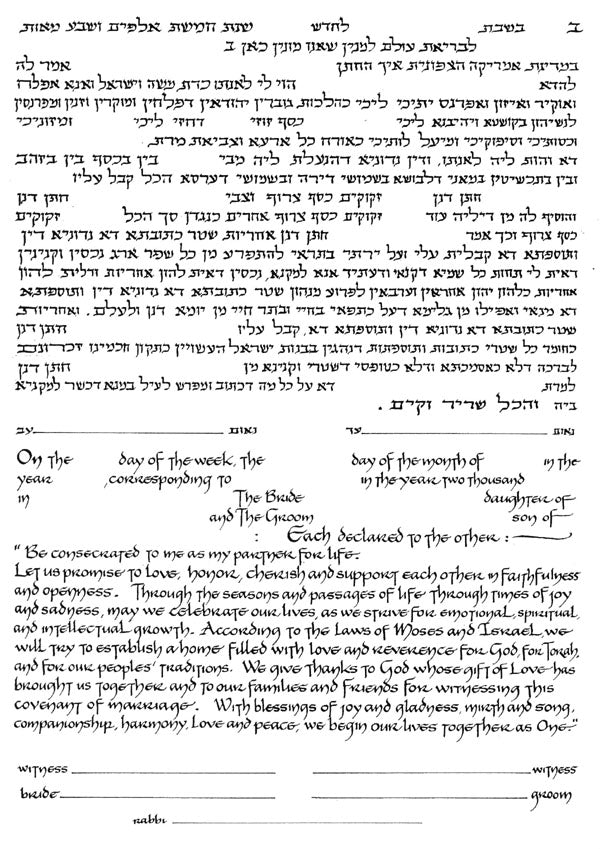 ב בשבת לחדש שנת חמשת אלפים ושבע מאות
לבריאת עולם למנין שאנו מונין כאן ב
במדינת אמריקה הצפונית איך החתן אמר לה
להדא הוי לי לאנתו כדת משה וישראל ואנא אפלח
ואוקיר ואיזון ואפרנס יתיכי ליכי כהלכות גוברין יהודאין דפלחין ומוקרין וזנין ומפרנסין
לנשיהון בקושטא ויהיבנא ליכי כסף זוזי דחזי ליכי ומזוניכי
וכסותיכי וסיפוקיכי ומיעל לותיכי כאורח כל ארעא וצביאת מרת
דא והות ליה לאנתו, ודין נדוניא דהנעלת ליה מבי בין בכסף בין בזהב
ובין בתכשיטין במאני דלבושא בשמושי דירה ובשמושי דערסא הכל קבל עליו
חתן דנן זקוקים כסף צרוף וצבי חתן דנן
והוסיף לה מן דיליה עוד זקוקים כסף צרוף אחרים כנגדן סך הכל זקוקים
כסף צרוף וכך אמר חתן דנן אחריות שטר כתובתא דא נדוניא דין
ותוספתא דא קבלית עלי ועל ירתי בתראי להתפרע מן כל שפר ארג נכסין וקנינין
דאית לי תחות כל שמיא דקנאי ודעתיד אנא למקנא, נכסין דאית להון אחריות ודלית להון
אחריות, כלהון יהון אחראין וערבאין לפרוע מנהון שטר כתובתא דא נדוניא דין ותוספתא
דא מנאי ואפילו מן גלימא דעל כתפאי בחיי ובתר חיי מן יומא דנן ולעלם. ואחריות
שטר כתובתא דא נדוניא דין ותוספתא דא, קבל עליו חתן דנן
כחומר כל שטרי כתובות ותוספתות, דנהגין בבנות ישראל העשויין כתקון חכמינו זכרונם
לברכה דלא כאסמכתא ודלא כטופסי דשטרי וקנינא מן חתן דנן
למרת דא על כל מה דכתוב ומפרש לעיל במנא דכשר למקניא
ביה והכל שריר וקים.
נאום עד נאום עב
On the day of the week, the day of the month of in the
year ,corresponding to in the year two thousand
in The Bride daughter of
and The Groom son of
: Each declared to the other :
"Be consecrated to me as my partner for life.
Let us promise to love, honor, cherish and support each other in faithfulness
and openness. Through the seasons and passages of life through times of joy
and sadness, may we celebrate our lives, as we strive for emotional, spiritual,
and intellectual growth. According to the laws of Moses and Israel, we
will try to establish a home filled with love and reverence for God, for Torah,
and for our peoples' traditions. We give thanks to God whose gift of Love has
brought us together and to our families and friends for witnessing this
covenant of marriage. With blessings of joy and gladness, mirth and song,
companionship, harmony, love and peace, we begin our lives together as One."
witness witness
bride groom
rabbi